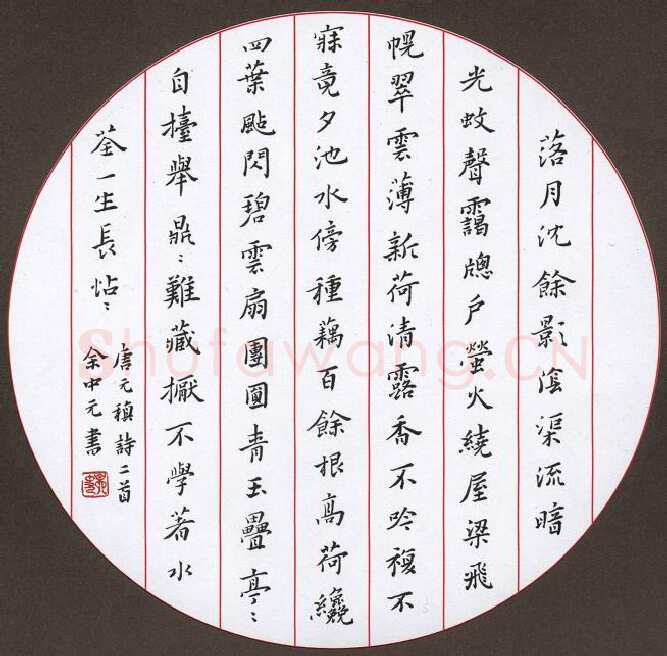 落月沈餘影陰渠流暗
光蚊聲靄牕户螢火繞屋梁飛
幌翠雲薄新荷清露香不吟複不
寐竟夕池水傍種藕百餘根高荷纔
四葉颭閃碧雲扇團圓青玉疊亭〻
自擡舉鼎〻難藏擫不學著水
荃一生長怗〻
唐元稹詩二首
余中元書
Shufawang.CN